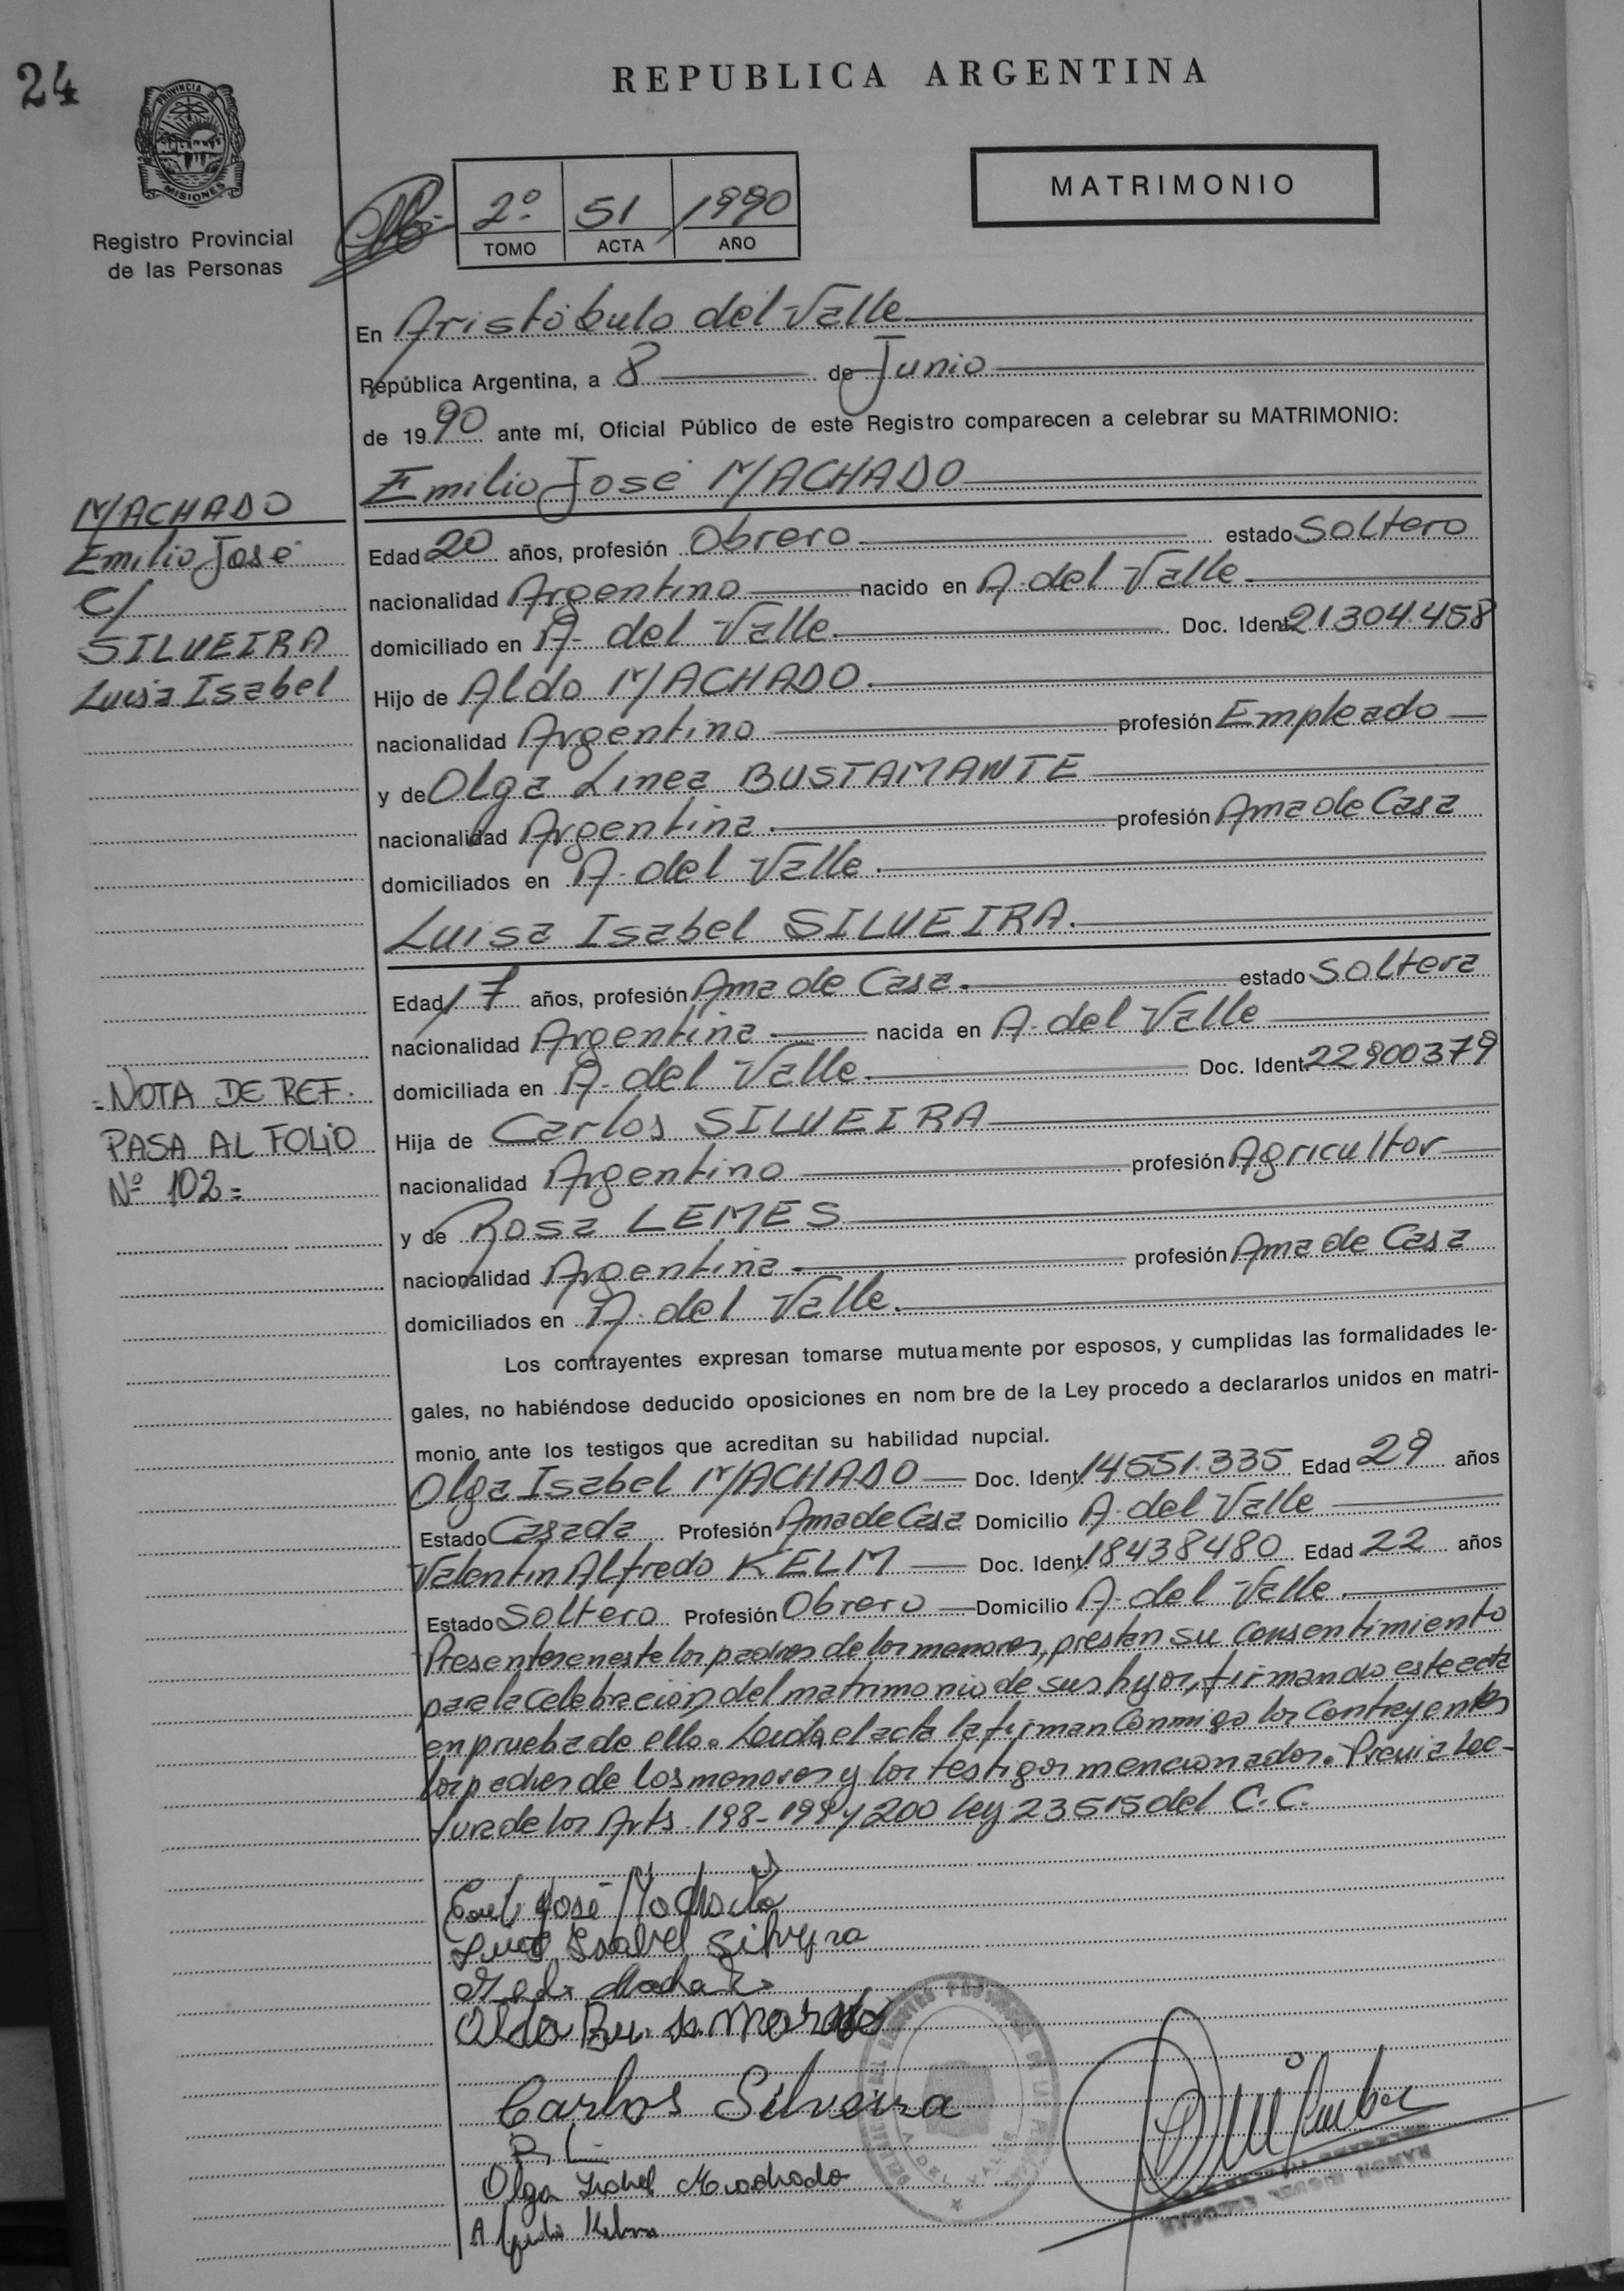 24
REPUBLICA ARGENTINA
PROVINCIA DE
MISIONES
Registro Provincial
de las Personas
2º 51 1990
TOMO ACTA AÑO
MATRIMONIO
En Aristóbulo del Valle
República Argentina, a 8 de Junio
de 1990 ante mí, Oficial Público de este Registro comparecen a celebrar su MATRIMONIO:
Emilio José MACHADO
MACHADO
Emilio José
C/
SILVEIRA
Luisa Isabel
Edad 20 años, profesión Obrero estado Soltero
nacionalidad Argentino nacido en A. del Valle
domiciliado en A. del Valle Doc. Ident. 21304.458
Hijo de Aldo MACHADO.
nacionalidad Argentino profesión Empleado
y de Olga Linea BUSTAMANTE
nacionalidad Argentina profesión Ama de Casa
domiciliados en A. del Valle
Luisa Isabel SILVEIRA.
Edad 17 años, profesión Ama de Casa. estado Soltera
nacionalidad Argentina nacida en A. del Valle
domiciliada en A. del Valle Doc. Ident. 22900379
Hija de Carlos SILVEIRA
nacionalidad Argentino profesión Agricultor
y de Rosa LEMES
nacionalidad Argentina profesión Ama de Casa
domiciliados en A. del Valle.
=NOTA DE REF.
PASA AL FOLIO
Nº 102=
Los contrayentes expresan tomarse mutuamente por esposos, y cumplidas las formalidades le-
gales, no habiéndose deducido oposiciones en nom bre de la Ley procedo a declararlos unidos en matri-
monio ante los testigos que acreditan su habilidad nupcial.
Olga Isabel MACHADO Doc. Ident. 14551.335 Edad 29 años
Estado Casada Profesión Ama de Casa Domicilio A. del Valle
Valentín Alfredo KELM Doc. Ident. 18438480 Edad 22 años
Estado Soltero Profesión Obrero Domicilio A. del Valle.
Presentes en este los padres de los menores, prestan su consentimiento
para la celebración del matrimonio de sus hijos, firmando este acta
en prueba de ello. Leída el acta la firman conmigo los contrayentes
los padres de los menores y los testigos mencionados. Previa lec-
tura de los Arts. 198-199 y 200 ley 23515 del C.C.
José Machado
Isabel Silveyra
Carlos Silveira
R. L.
Olga Isabel Machado